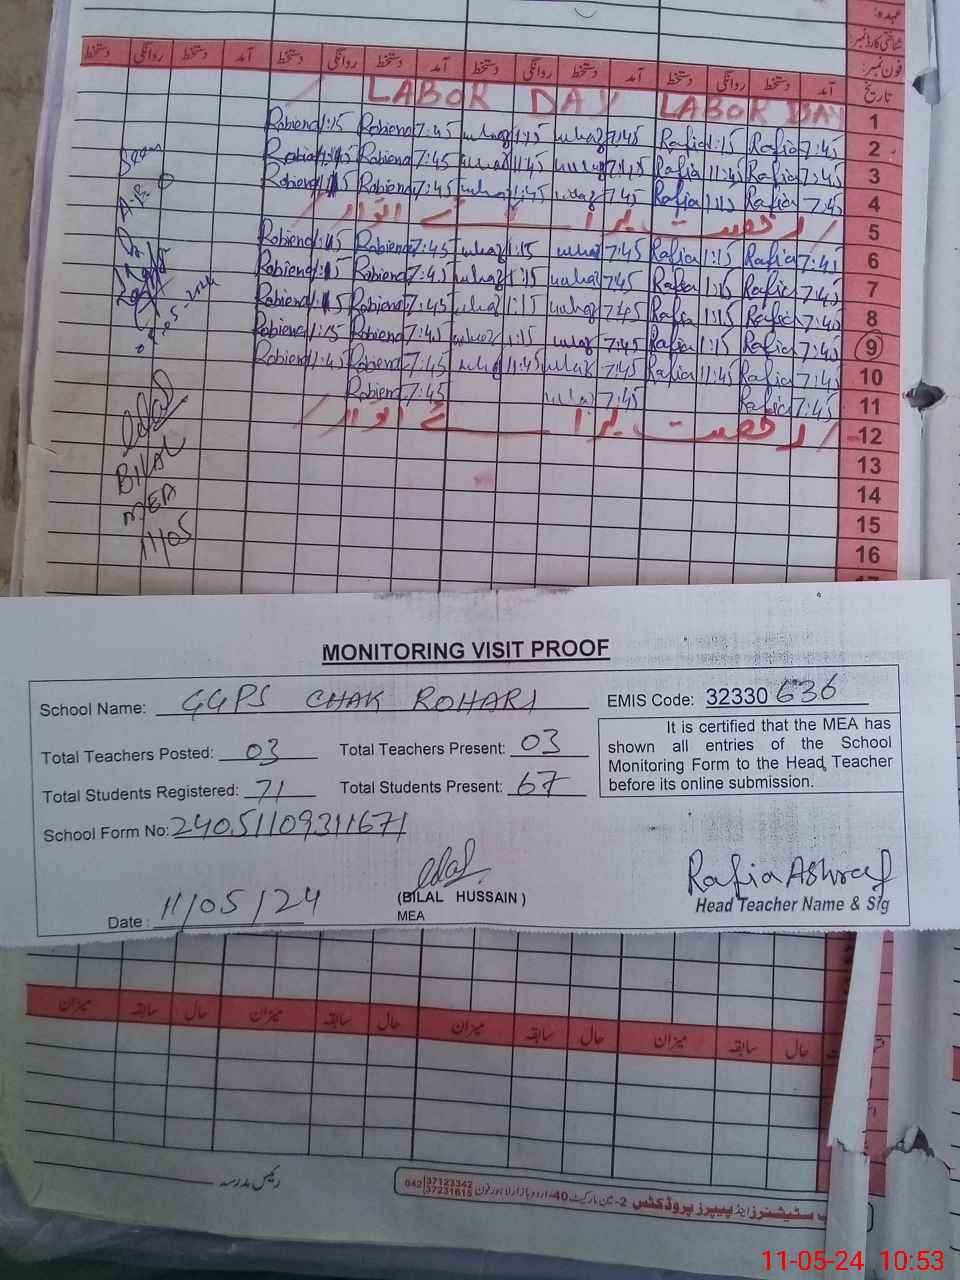 عہدہ:
شناختی کارڈ نمبر:
فون نمبر:
تاریخ آمد دستخط روانگی دستخط آمد دستخط روانگی دستخط آمد دستخط روانگی دستخط آمد دستخط روانگی دستخط
LABOR DAY LABOR DAY 1
Robiena 1:15 Robiena 7:45 1:15 7:45 Rafia 1:15 Rafia 7:45 2
Robiena 11:45 Robiena 7:45 11:45 7:45 Rafia 11:45 Rafia 7:45 3
Robiena Robiena 7:45 7:45 Rafia 1:15 Rafia 7:45 4
رخصت برائے اتوار 5
Robiena 1:15 Robiena 7:45 1:15 7:45 Rafia 1:15 Rafia 7:45 6
Robiena 1:15 Robiena 7:45 1:15 7:45 Rafia 1:15 Rafia 7:45 7
Robiena 1:15 Robiena 7:45 1:15 7:45 Rafia 1:15 Rafia 7:45 8
Robiena 1:15 Robiena 7:45 1:15 7:45 Rafia 1:15 Rafia 7:45 9
Robiena 11:45 Robiena 7:45 11:45 7:45 Rafia 11:45 Rafia 7:45 10
Robiena 7:45 7:45 Rafia 7:45 11
رخصت برائے اتوار 12
13
14
15
16
BILAL
MEA
11/05
MONITORING VISIT PROOF
School Name: GGPS CHAK ROHARI
EMIS Code: 32330 636
Total Teachers Posted: 03 Total Teachers Present: 03
Total Students Registered: 71 Total Students Present: 67
School Form No: 24051109311671
It is certified that the MEA has
shown all entries of the School
Monitoring Form to the Head Teacher
before its online submission.
Date: 11/05/24
(BILAL HUSSAIN)
MEA
Rafia Ashraf
Head Teacher Name & Sig
حال سابقہ میزان حال سابقہ میزان حال سابقہ میزان حال سابقہ میزان
رئیس مدرسہ
سٹیشنرز اینڈ پیپرز پروڈکٹس 2-مین مارکیٹ 40-اردو بازار لاہور فون 042 37123342 37231615
11-05-24 10:53